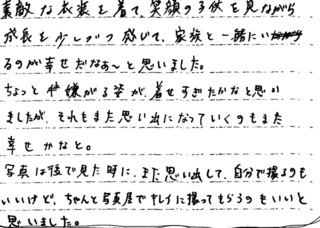 素敵な衣装を着て、笑顔の子供を見ながら
成長を少しづつ感じて、家族と一緒にい
るのが幸せだなあ〜と思いました。
ちょっと嫌がる姿が、着せすぎたかなと思い
ましたが、それもまた思い出になっていくのもまた
幸せかなと。
写真は後で見た時に、また思い出して、自分で撮るのも
いいけど、ちゃんと写真屋でキレイに撮ってもらうのもいいと
思いました。